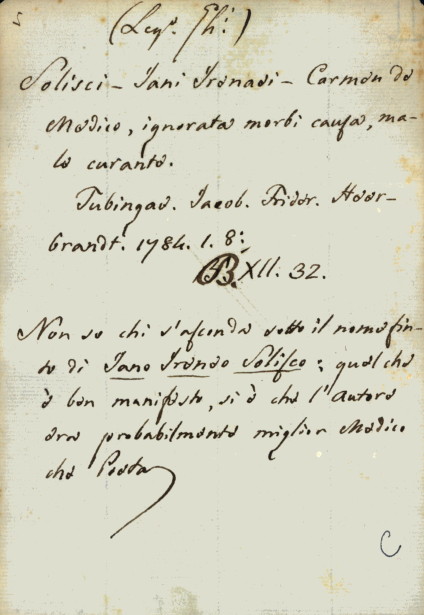 S
(Leg. Ph:)
Solisci - Jani Irenaei - Carmen de
Medico, ignorata morbi causa, ma-
le curante.
Tubingae. Jacob. Frider. Heer-
brandt. 1784. 1. 8:
B. XII. 32.
Non so chi s'asconda sotto il nome fin-
to di Jano Ireneo Solisco; quel che
è ben manifesto, si è che l'Autore
era probabilmente miglior Medico
che Poeta
C